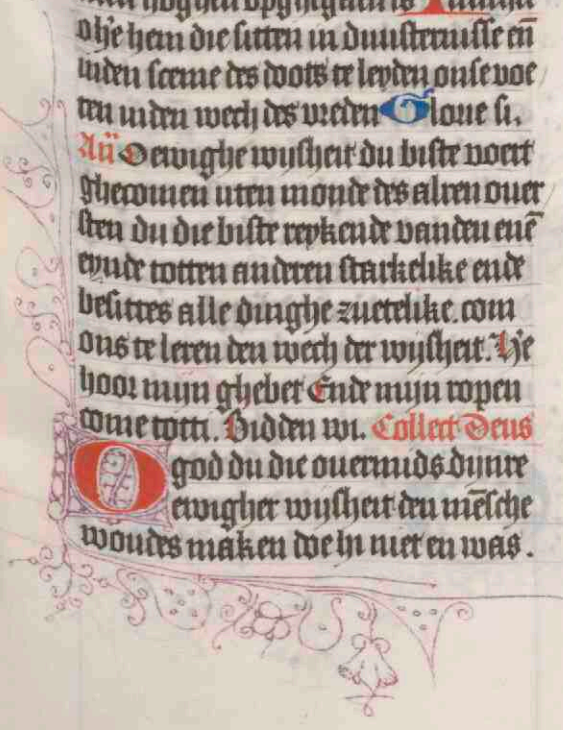 ohe hem die sitten in duusternisse eñ
inden sceme des doots te leyden onse voe
ten inden wech des vreden Glorie si.
Añ O ewighe wijsheit du biste voert
ghecomen uten monde des alren ouer
sten du die biste reykende vanden enē
eynde totten anderen starkelike ende
besittes alle dinghe zuetelike. com
ons te leren den wech der wijsheit. He
hoor mijn ghebet Ende mijn ropen
come totti. Bidden wi. Collect Deus
O god du die ouermids dijnre
ewigher wijsheit den mēsche
woudes maken doe hi niet en was.